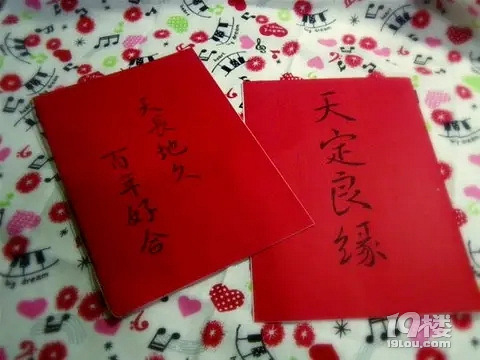 天长地久
百年好合
天定良缘
by dream
by dream
19楼
19lou.com